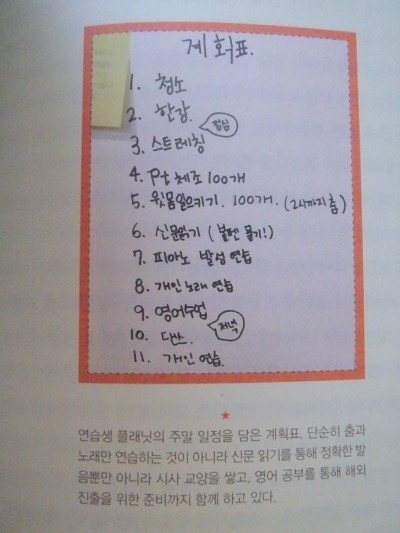 계획표.
1. 청소
2. 한강
점심
3. 스트레칭
4. Pt 체조 100개
5. 윗몸일으키기. 100개. (2시까지 춤)
6. 신문읽기 (볼펜 물기!)
7. 피아노 발성 연습
8. 개인 노래 연습
9. 영어수업
저녁
10. 댄스
11. 개인 연습.
★
연습생 플래닛의 주말 일정을 담은 계획표. 단순히 춤과
노래만 연습하는 것이 아니라 신문 읽기를 통해 정확한 발
음뿐만 아니라 시사 교양을 쌓고, 영어 공부를 통해 해외
진출을 위한 준비까지 함께 하고 있다.